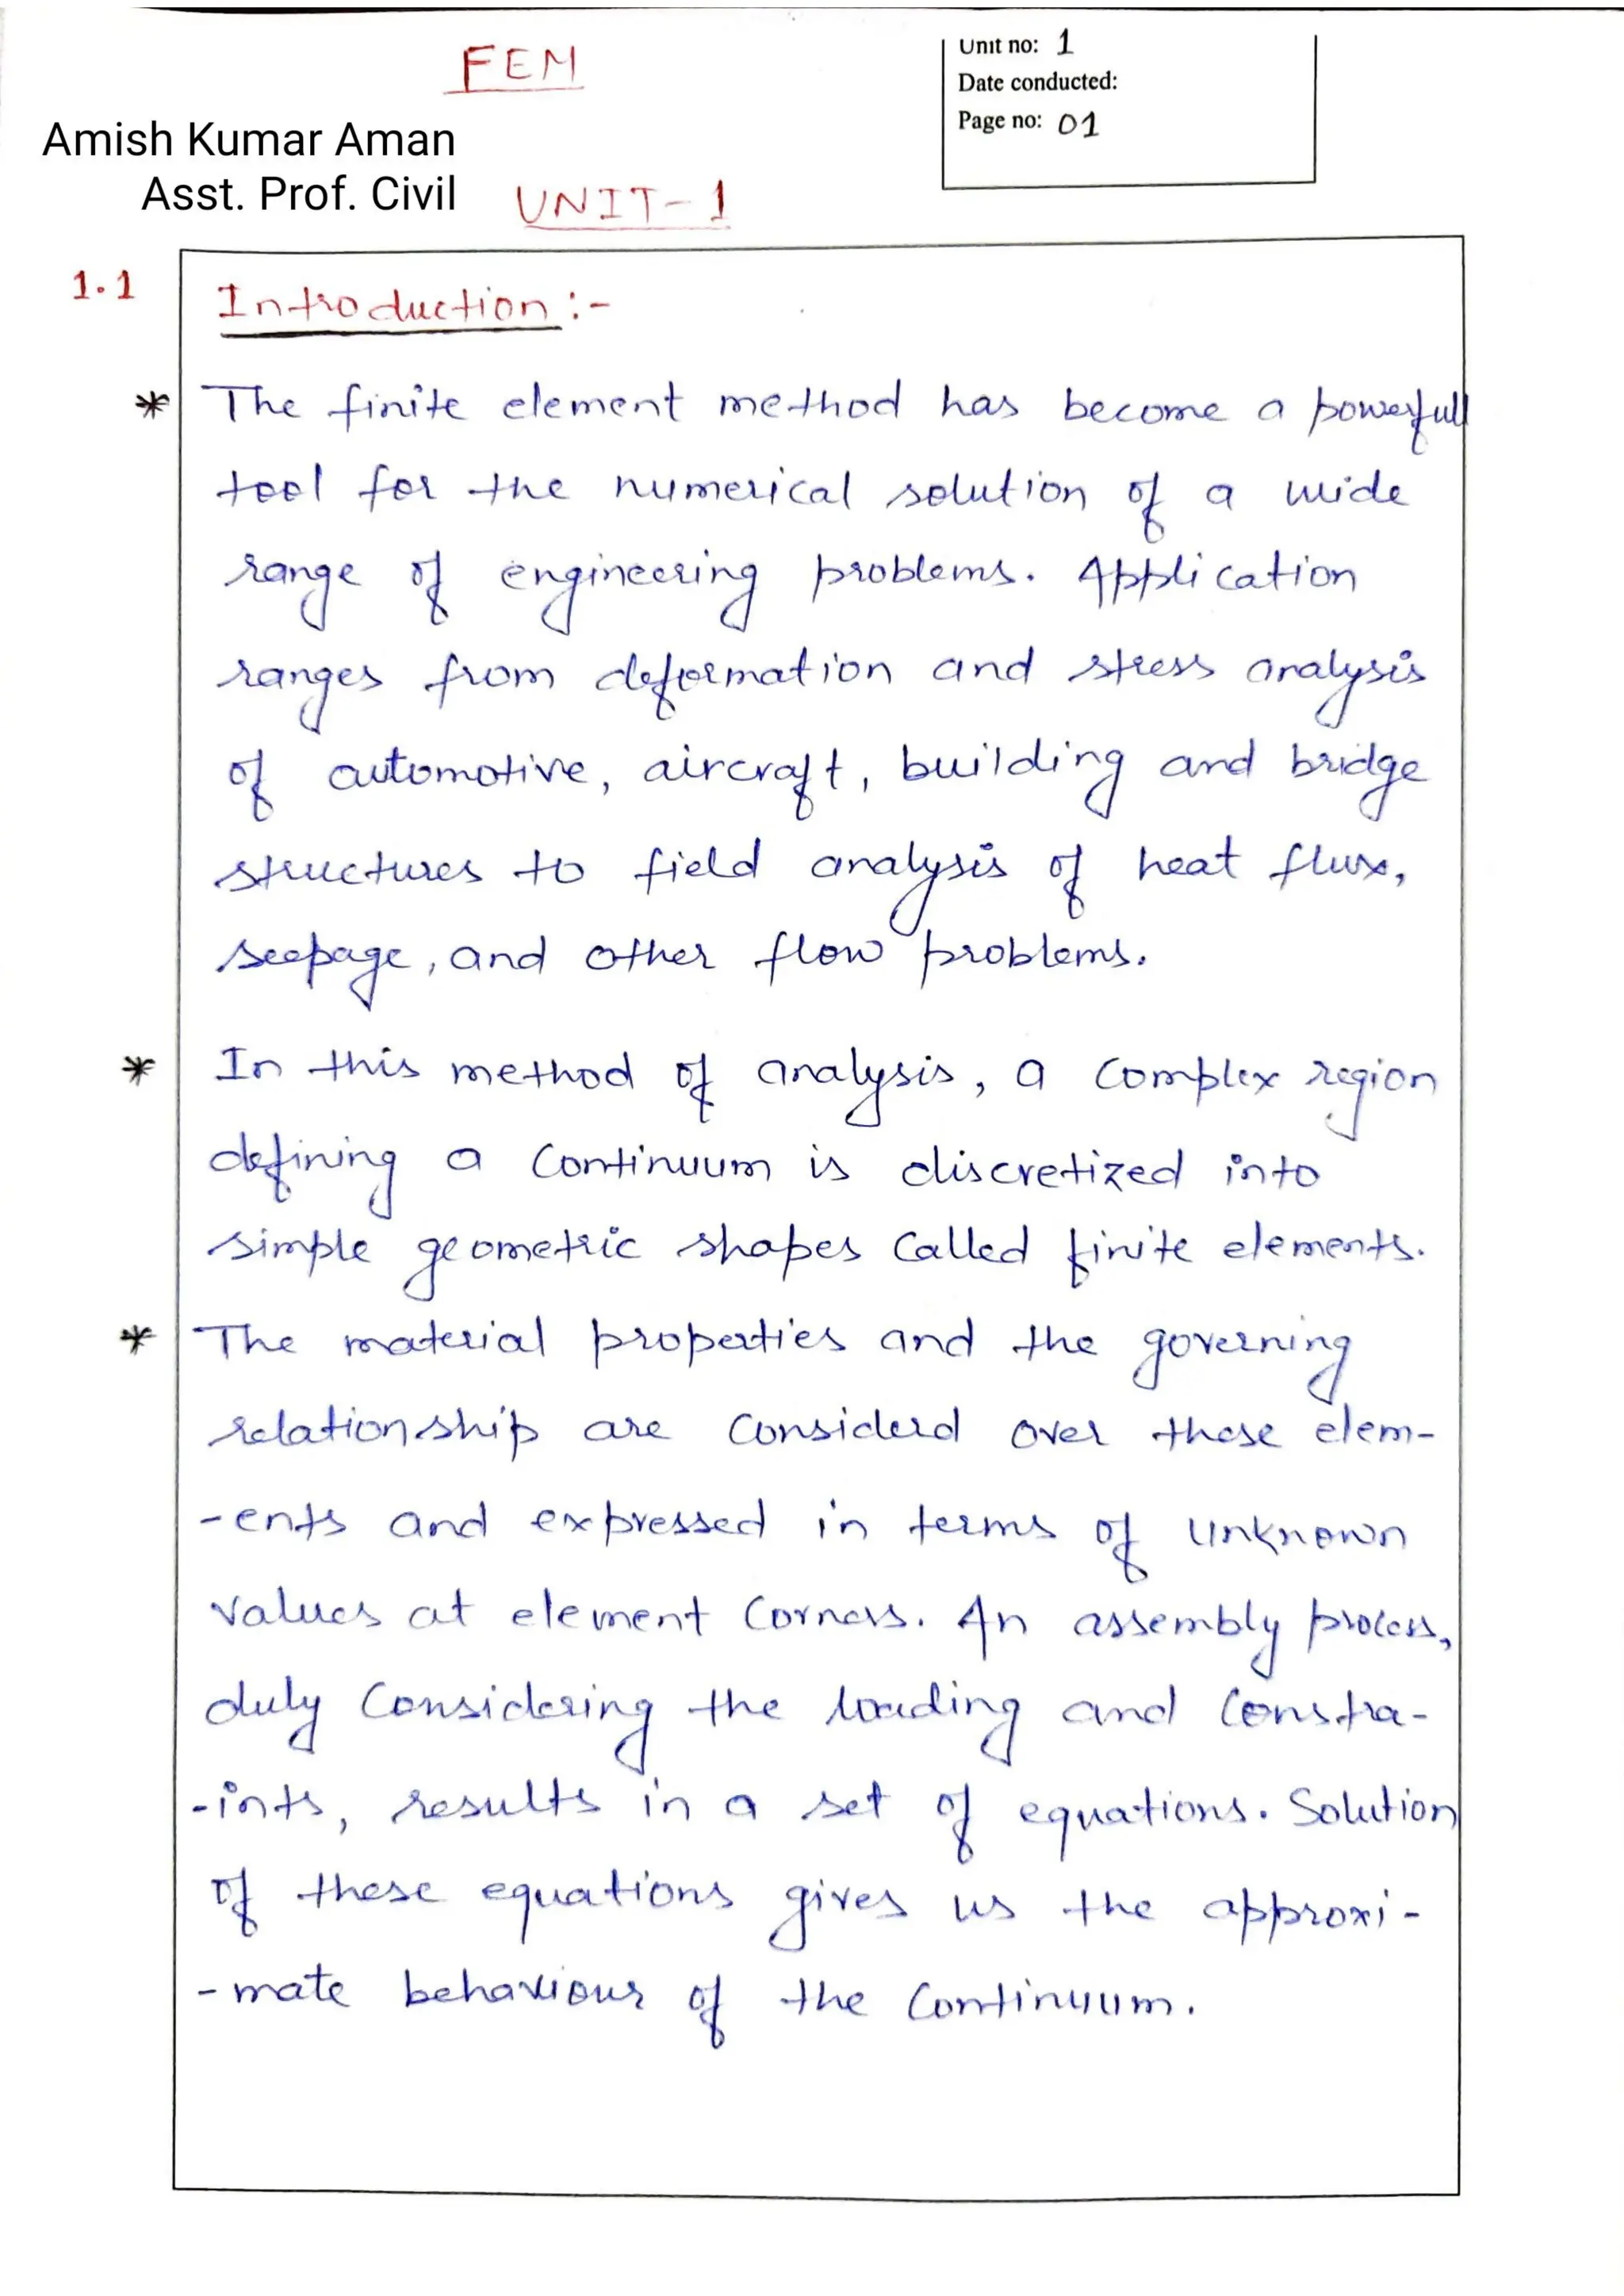 FEM
Unit no: 1
Date conducted:
Page no: 01
Amish Kumar Aman
Asst. Prof. Civil
UNIT-1
1.1
Introduction :-
* The finite element method has become a powerfull
tool for the numerical solution of a wide
range of engineering problems. Application
ranges from deformation and stress analysis
of automotive, aircraft, building and bridge
structures to field analysis of heat flux,
seepage, and other flow problems.
* In this method of analysis, a complex region
defining a continuum is discretized into
simple geometric shapes called finite elements.
* The material properties and the governing
relationship are considerd over these elem-
-ents and expressed in terms of unknown
values at element corners. An assembly process,
duly considering the loading and constra-
-ints, results in a set of equations. Solution
of these equations gives us the approxi-
-mate behaviour of the continuum.